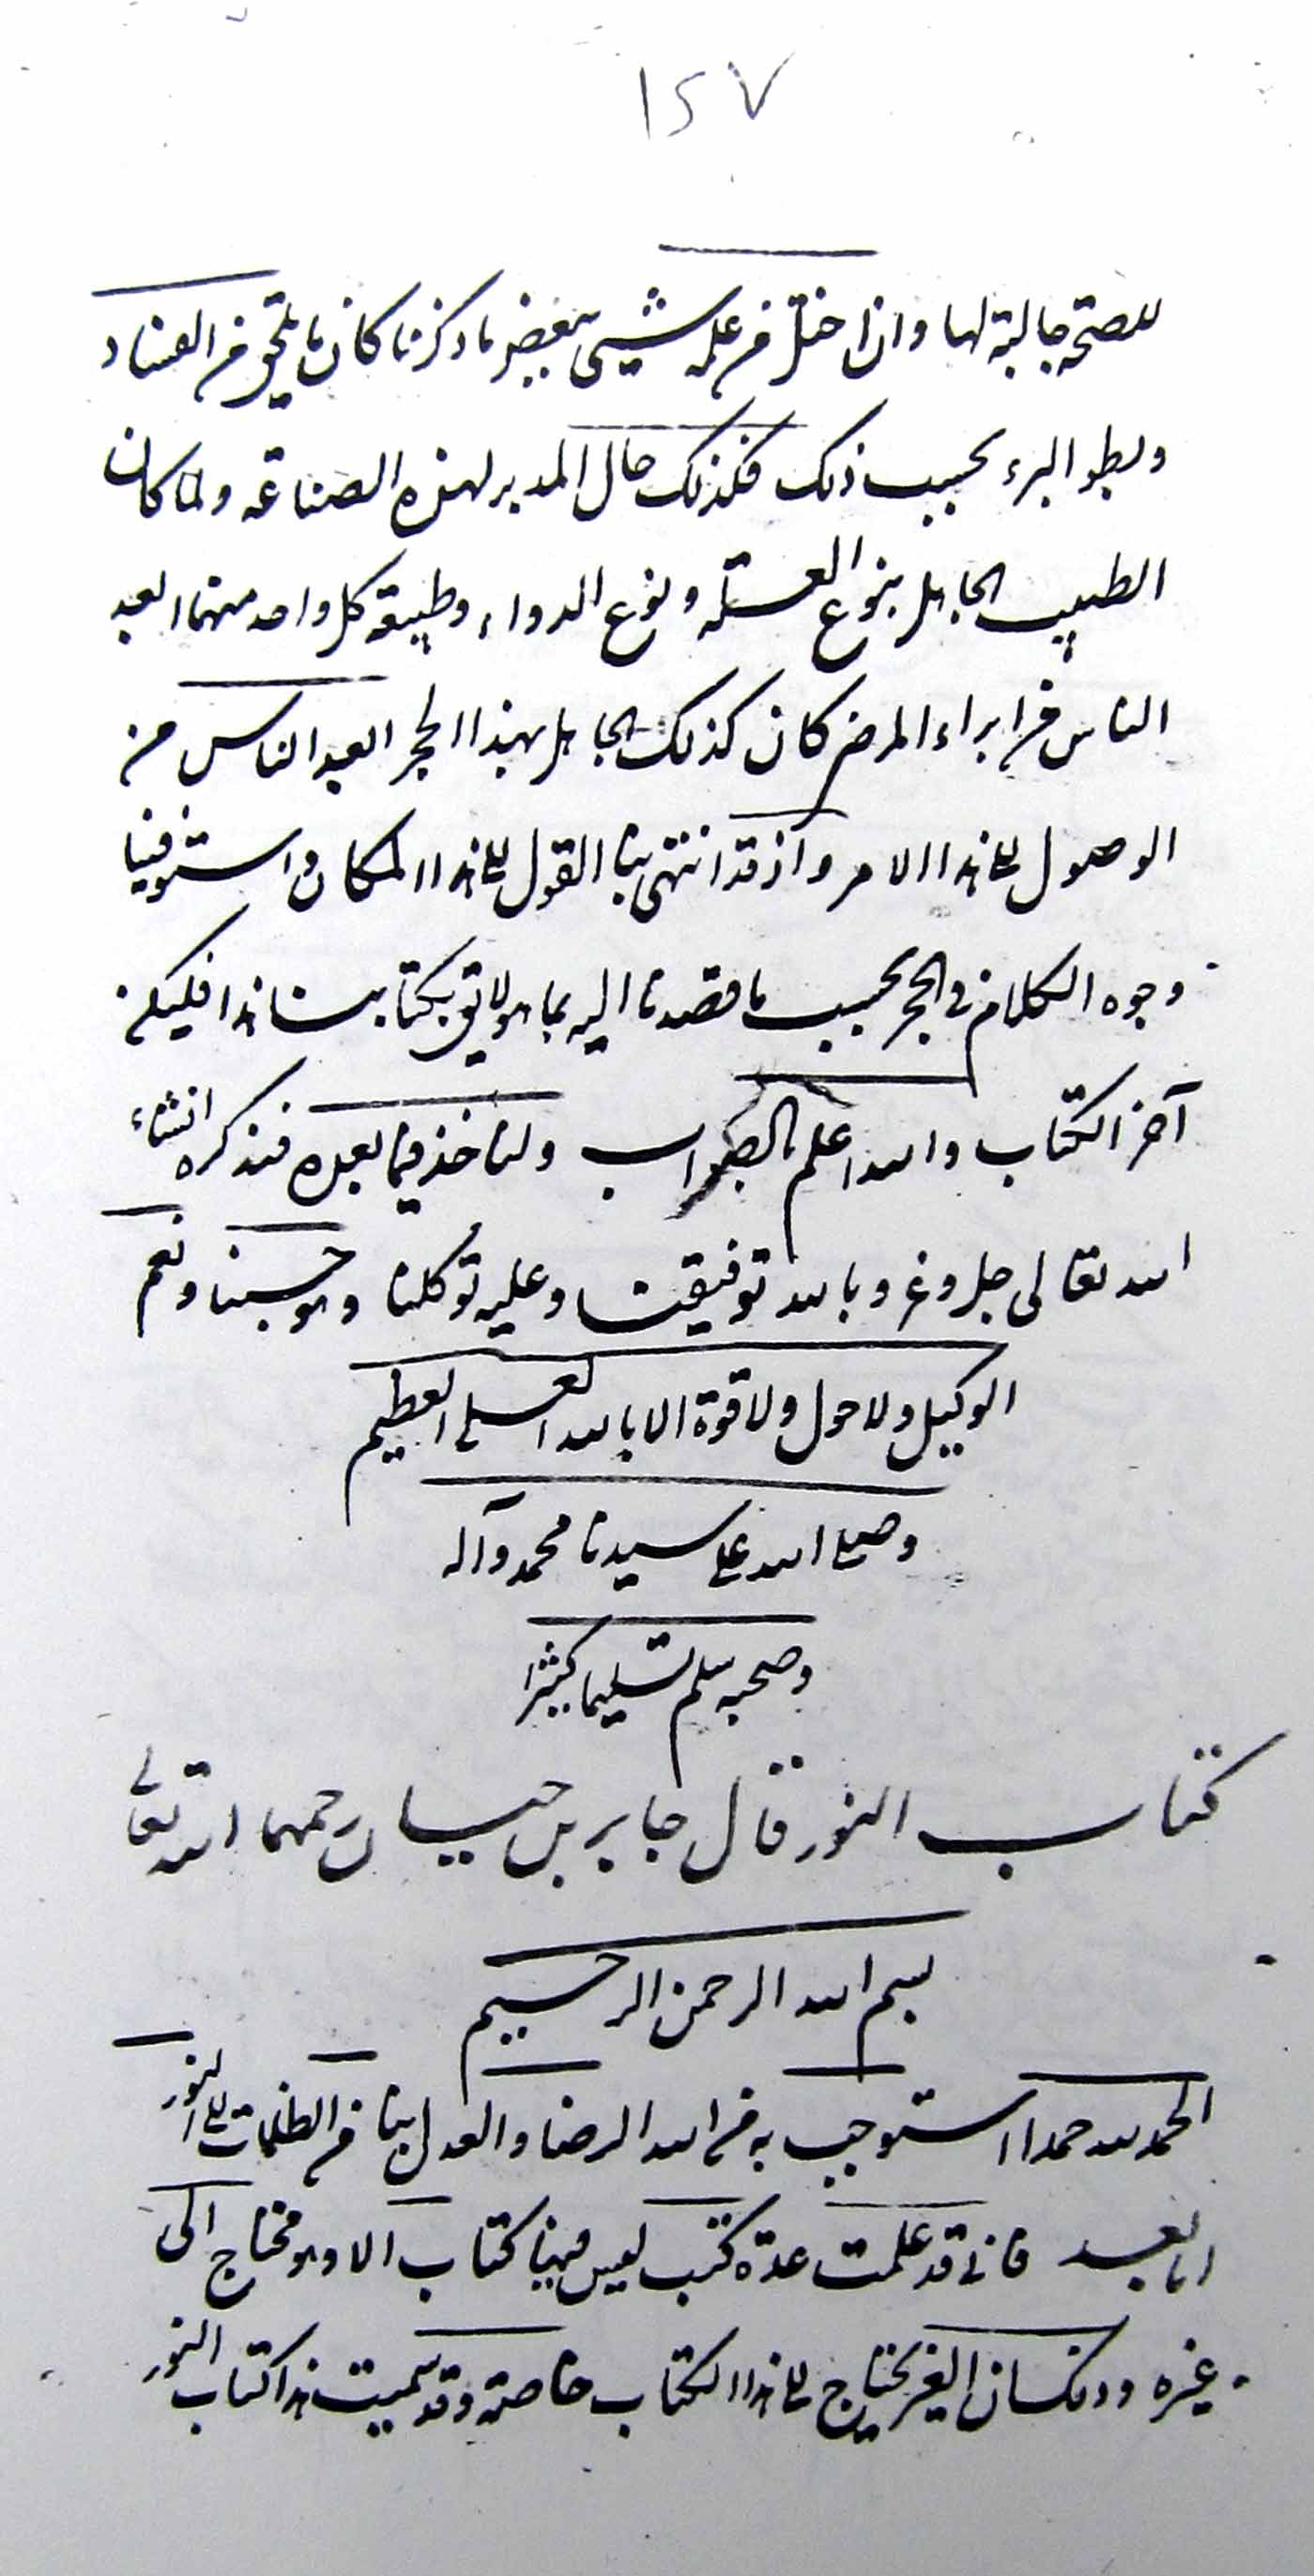 ١٤٧
للصحة جالبة لها واذا اختل من علمه شيئ ببعض ما ذكرنا كان ما يلحق من الفساد
وبطو البرء بحسب ذلك فكذلك حال المدبر لهذه الصناعة ولما كان
الطبيب الجاهل بنوع العلة ونوع الدواء وطبيعة كل واحد منهما ابعد
الناس من ابراء المرض كان كذلك الجاهل بهذا الحجر ابعد الناس من
الوصول الى هذا الامر واذ قد انتهى بنا القول الى هذا المكان واستوفينا
وجوه الكلام في الحجر بحسب ما قصدنا اليه بما هو لايق بكتابنا هذا فليكن
آخر الكتاب والله اعلم بالصواب ولناخذ فيما بعده فنذكره انشاء
الله تعالى جل وعز وبالله توفيقنا وعليه توكلنا وهو حسبنا ونعم
الوكيل ولا حول ولا قوة الا بالله العلى العظيم
وصلى الله على سيدنا محمد وآله
وصحبه سلم تسليما كثيرا
كتاب النور قال جابر بن حيان رحمهما الله تعالى
بسم الله الرحمن الرحيم
الحمد لله حمدا استوجب به من الله الرضا والعدل بنا من الظلمات الى النور
اما بعد فانى قد علمت عدة كتب ليس فيها كتاب الا وهو محتاج الى
غيره وذلك ان الغير يحتاج الى هذا الكتاب خاصة وقد سميت هذا كتاب النور